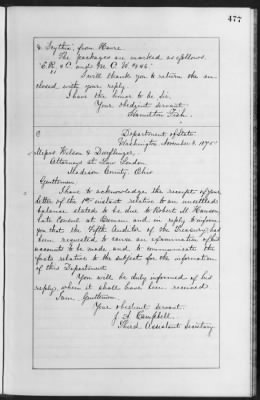 477
& Scythia, from Havre
The packages are marked as follows.
"C.R. & C. and Mr. C. W. #46"
I will thank you to return the en-
closed with your reply
I have the honor to be Sir
Your obedient servant
Hamilton Fish.
Department of State
Washington November 8. 1875
Messrs Wilson &
Attorneys at Law London
Madison County, Ohio
Gentlemen
I have to acknowledge the receipt of your
letter of the 1st instant relative to an unsettled
balance stated to be due to Robert M. Hanson
late Consul at Bremen and in reply to inform
you that the Fifth Auditor of the Treasury has
been requested to cause an examination of his
accounts to be made, and to communicate the
facts relative to the subject for the information
of this Department
You will be duly informed of his
reply when it shall have been received
I am, Gentlemen
Your obedient servant
J. A. Campbell
Third Assistant Secretary